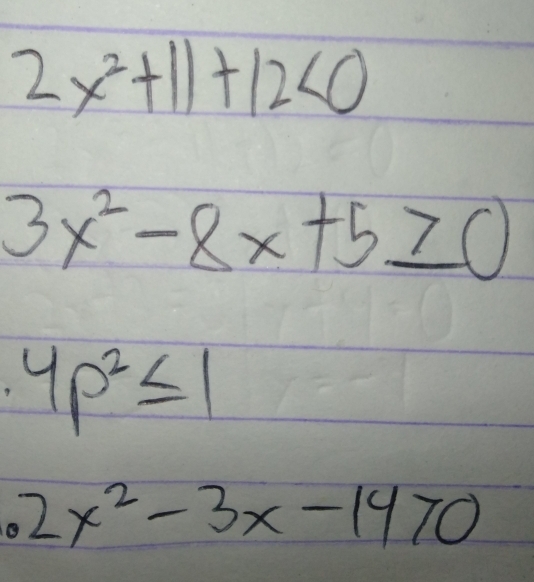 2x²+11+12<0
3x²-8x+5≥0
.4p²≤1
.2x²-3x-14>0